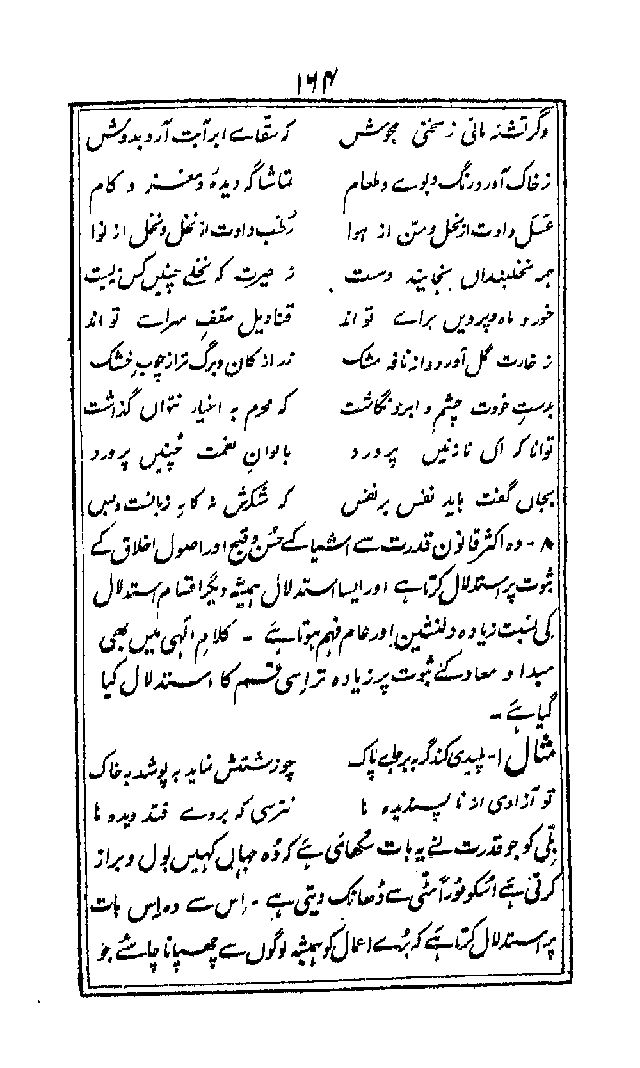 ۱۶۴
وگر تشنہ مانی ز سختی مجوش کہ سقاے ابر آبت آرد بدوش
ز خاک آورد رنگ و بوے و طعام تماشاگہ دیدہ و مغز و کام
عسل دادت از نحل و من از ہوا رطب دادت از نخل و نخل از نوا
ہمہ نخلبنداں بخایند دست ز حیرت کہ نخلے چنیں کس نہ بست
خور و ماہ و پرویں براے تو اند قنادیل سقف سراے تو اند
ز خارت گل آورد و از نافہ مشک زر از کان و برگ تر از چوب خشک
بدست خودت چشم و ابرو نگاشت کہ محرم بہ اغیار نتواں گذاشت
توانا کہ آں نازنیں پرورد بالوان نعمت چنیں پرورد
بجاں گفت باید نفس بر نفس کہ شکرش نہ کار زبانست و بس
۸ - وہ اکثر قانون قدرت سے اشیا کے حسن و قبح اور اصول اخلاق کے
ثبوت پر استدلال کرتا ہے اور ایسا استدلال ہمیشہ دیگر اقسام استدلال
کی نسبت زیادہ دلنشین اور عام فہم ہوتا ہے - کلام الٰہی میں بھی
مبدا و معاد کے ثبوت پر زیادہ تر اسی قسم کا استدلال کیا
گیا ہے -
مثال ۱- پلیدی کند گربہ بر جاے پاک چو زشتش نماید بپوشد بہ خاک
تو آزادی از ناپسندیدہ ہا نترسی کہ بر وے فتد دیدہ ہا
بلی کو جو قدرت نے یہ بات سکھائی ہے کہ وہ جہاں کہیں بول و براز
کرتی ہے اسکو فوراً مٹی سے ڈھانک دیتی ہے - اس سے وہ اس بات
پر استدلال کرتا ہے کہ بُرے اعمال کو ہمیشہ لوگوں سے چھپانا چاہئے جو